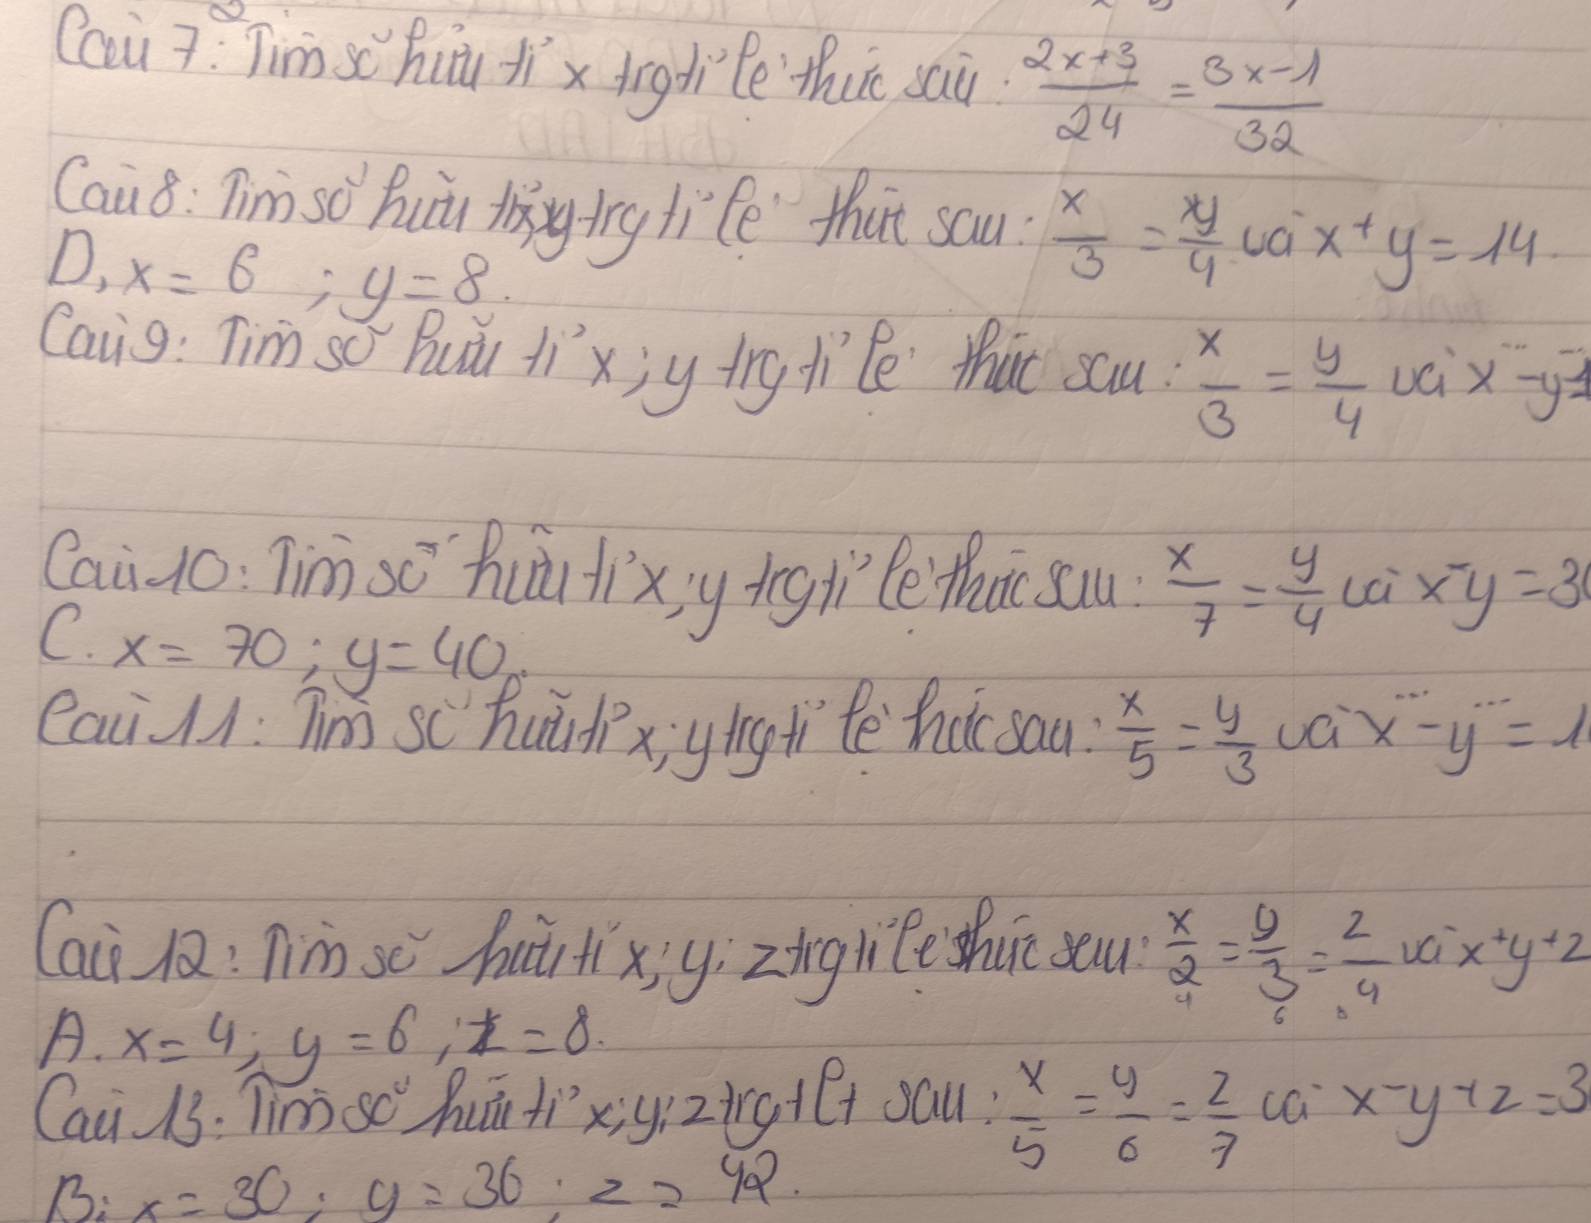 Câu 7: Tìm số hữu tỉ x trg tỉ lệ thức sau: (2x+3)/24 = (3x-1)/32
Câu 8: Tìm số hữu tỉ x;y trg tỉ lệ thức sau: x/3 = y/4 và x+y=14.
D, x = 6 ; y = 8.
Câu 9: Tìm số hữu tỉ x;y trg tỉ lệ thức sau: x/3 = y/4 và x -y
Câu 10: Tìm số hữu tỉ x;y trg tỉ lệ thức sau: x/7 = y/4 và x-y = 30
C. x = 70 ; y = 40.
Câu 11: Tìm số hữu tỉ x;y trg tỉ lệ thức sau: x/5 = y/3 và x -y = 1
Câu 12: Tìm số hữu tỉ x; y; z trg tỉ lệ thức sau: x/2 = y/3 = z/4 và x+y+z
4 6 8
A. x = 4; y = 6 ; z = 8.
Câu 13: Tìm số hữu tỉ x;y;z trg tlt sau: x/5 = y/6 = z/7 và x-y+z=3
B; x = 30; y = 36 ; z = 42.